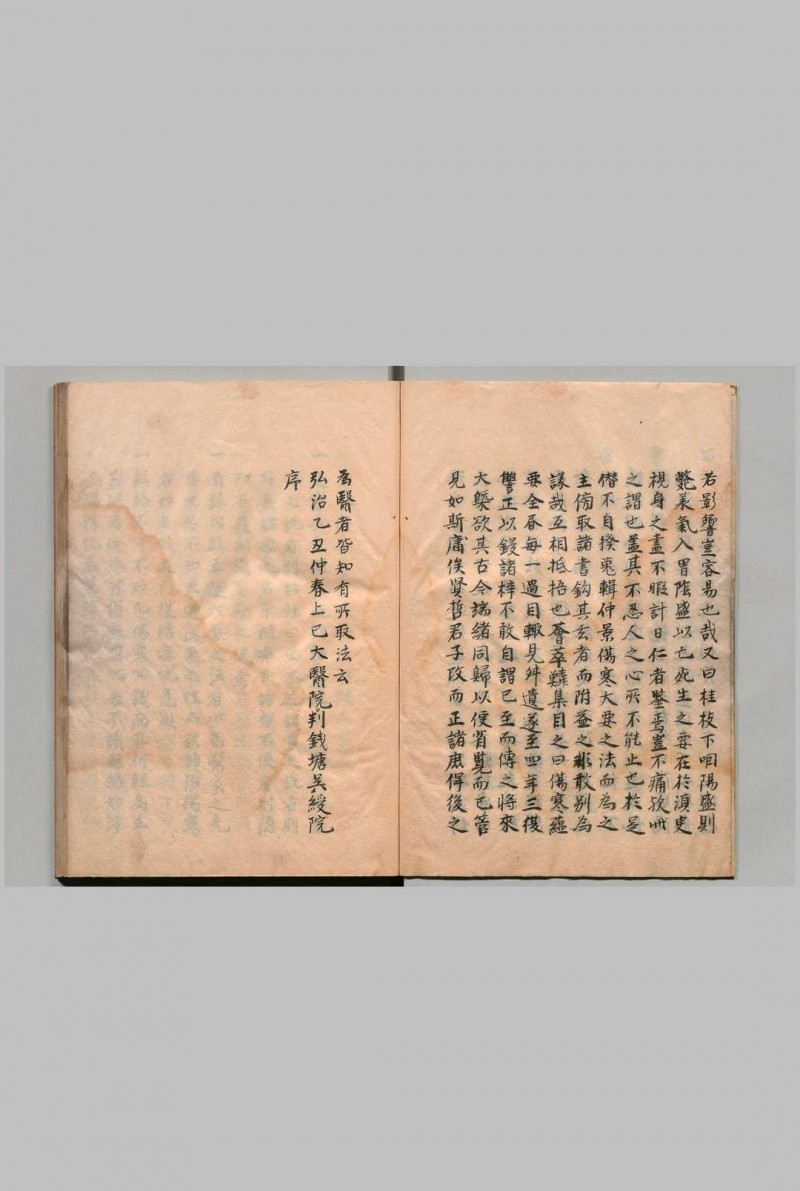 若影響豈容易也哉又曰桂枝下咽陽盛則
斃承氣入胃陰盛以亡死生之要在於湏史
視身之盡不暇計日仁者鑒焉豈不痛欤
之謂也盖其不忍人之心所不能止也於是
僣不自揆蒐輯仲景傷寒大要之法而為之
主傍取諸書鈎其玄者而附益之非敢别為
議哉互相抵捂也薈萃類集目之曰傷寒蘊
要全书每一過目輙見舛遺遂至四年三復
讐正以鋟諸梓不敢自謂已至而傳之将來
大槩欲其古今端緒同歸以便省覽而已管
見如斯庸俟賢哲君子改而正諸庶俾後之
為醫者皆知有所取法云
弘治乙丑仲春上巳大醫院判錢塘吳綬院
序